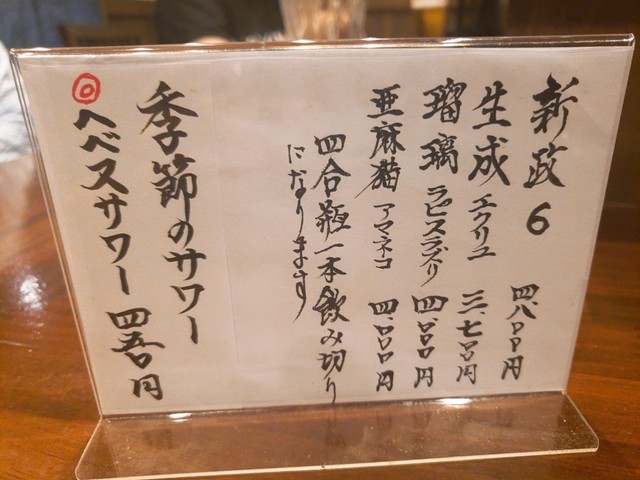 新政6 四、八〇〇円
生成 エクリュ 三、七〇〇円
瑠璃 ラピスラズリ 四、〇〇〇円
亜麻猫 アマネコ 四、〇〇〇円
四合瓶一本飲み切り
になります
季節のサワー
◎ヘベスサワー 四五〇円